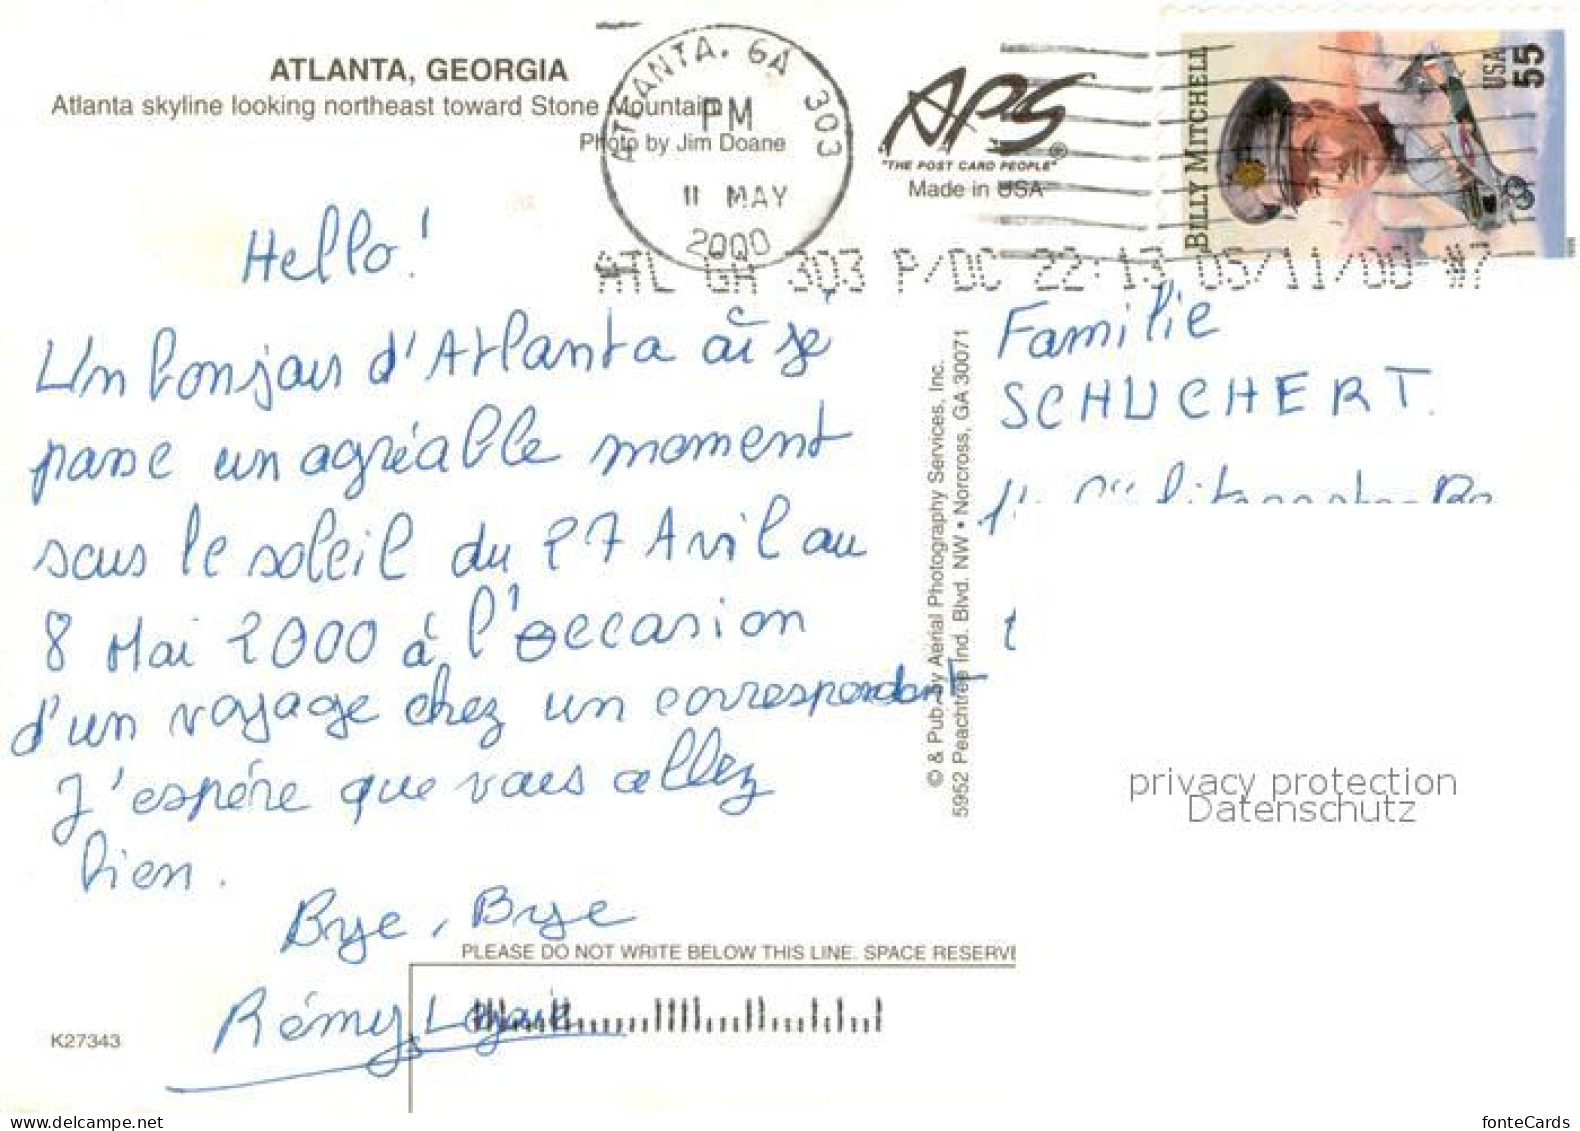 ATLANTA, GEORGIA
Atlanta skyline looking northeast toward Stone Mountain
Photo by Jim Doane
ATLANTA. GA 303
PM
11 MAY
2000
APS®
"THE POST CARD PEOPLE"
Made in USA
BILLY MITCHELL
USA 55
ATL GA 303 P/DC 22:13 05/11/00 #7
Hello!
Un bonjour d'Atlanta où je
passe un agréable moment
sous le soleil du 27 Avril au
8 Mai 2000 à l'occasion
d'un voyage chez un correspondant
J'espère que vous allez
bien.
Bye, Bye
Rémy
Familie
SCHUCHERT.
© & Pub. by Aerial Photography Services, Inc.
5952 Peachtree Ind. Blvd. NW • Norcross, GA 30071
privacy protection
Datenschutz
PLEASE DO NOT WRITE BELOW THIS LINE. SPACE RESERVE
K27343
www.delcampe.net
fonteCards